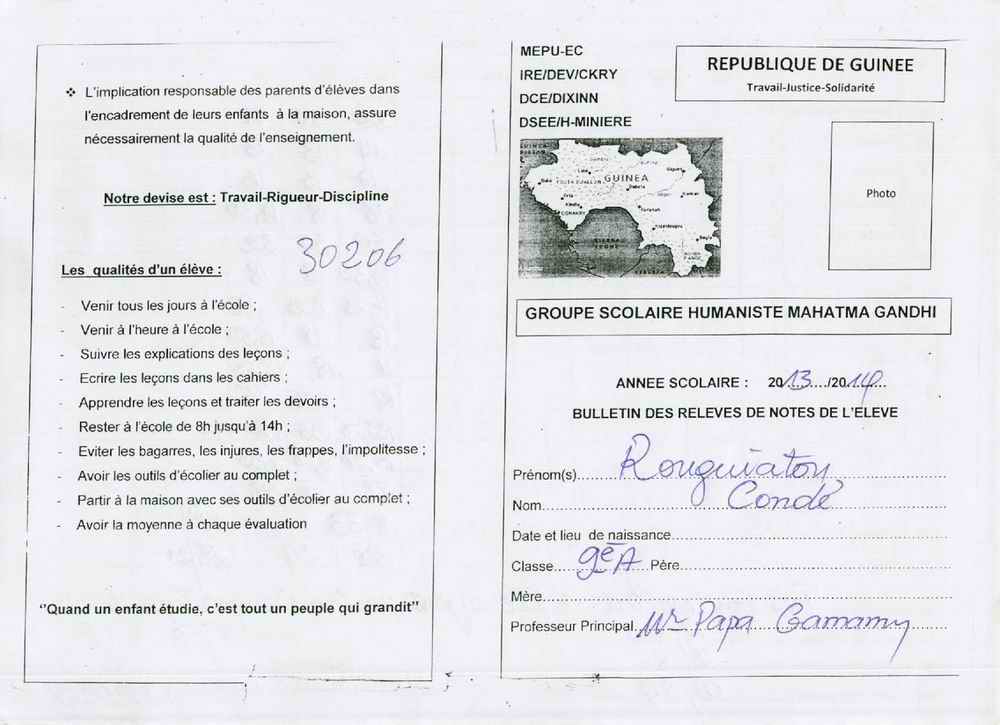 ❖ L'implication responsable des parents d'élèves dans
l'encadrement de leurs enfants à la maison, assure
nécessairement la qualité de l'enseignement.
Notre devise est : Travail-Rigueur-Discipline
30206
Les qualités d'un élève :
- Venir tous les jours à l'école ;
- Venir à l'heure à l'école ;
- Suivre les explications des leçons ;
- Ecrire les leçons dans les cahiers ;
- Apprendre les leçons et traiter les devoirs ;
- Rester à l'école de 8h jusqu'à 14h ;
- Eviter les bagarres, les injures, les frappes, l'impolitesse ;
- Avoir les outils d'écolier au complet ;
- Partir à la maison avec ses outils d'écolier au complet ;
- Avoir la moyenne à chaque évaluation
"Quand un enfant étudie, c'est tout un peuple qui grandit"
MEPU-EC
IRE/DEV/CKRY
DCE/DIXINN
DSEE/H-MINIERE
REPUBLIQUE DE GUINEE
Travail-Justice-Solidarité
GUINEA
CONAKRY
Photo
GROUPE SCOLAIRE HUMANISTE MAHATMA GANDHI
ANNEE SCOLAIRE : 2013/2014
BULLETIN DES RELEVES DE NOTES DE L'ELEVE
Prénom(s) Rouguiatou
Nom Condé
Date et lieu de naissance
Classe 9e A Père
Mère
Professeur Principal Mr Papa Camamy